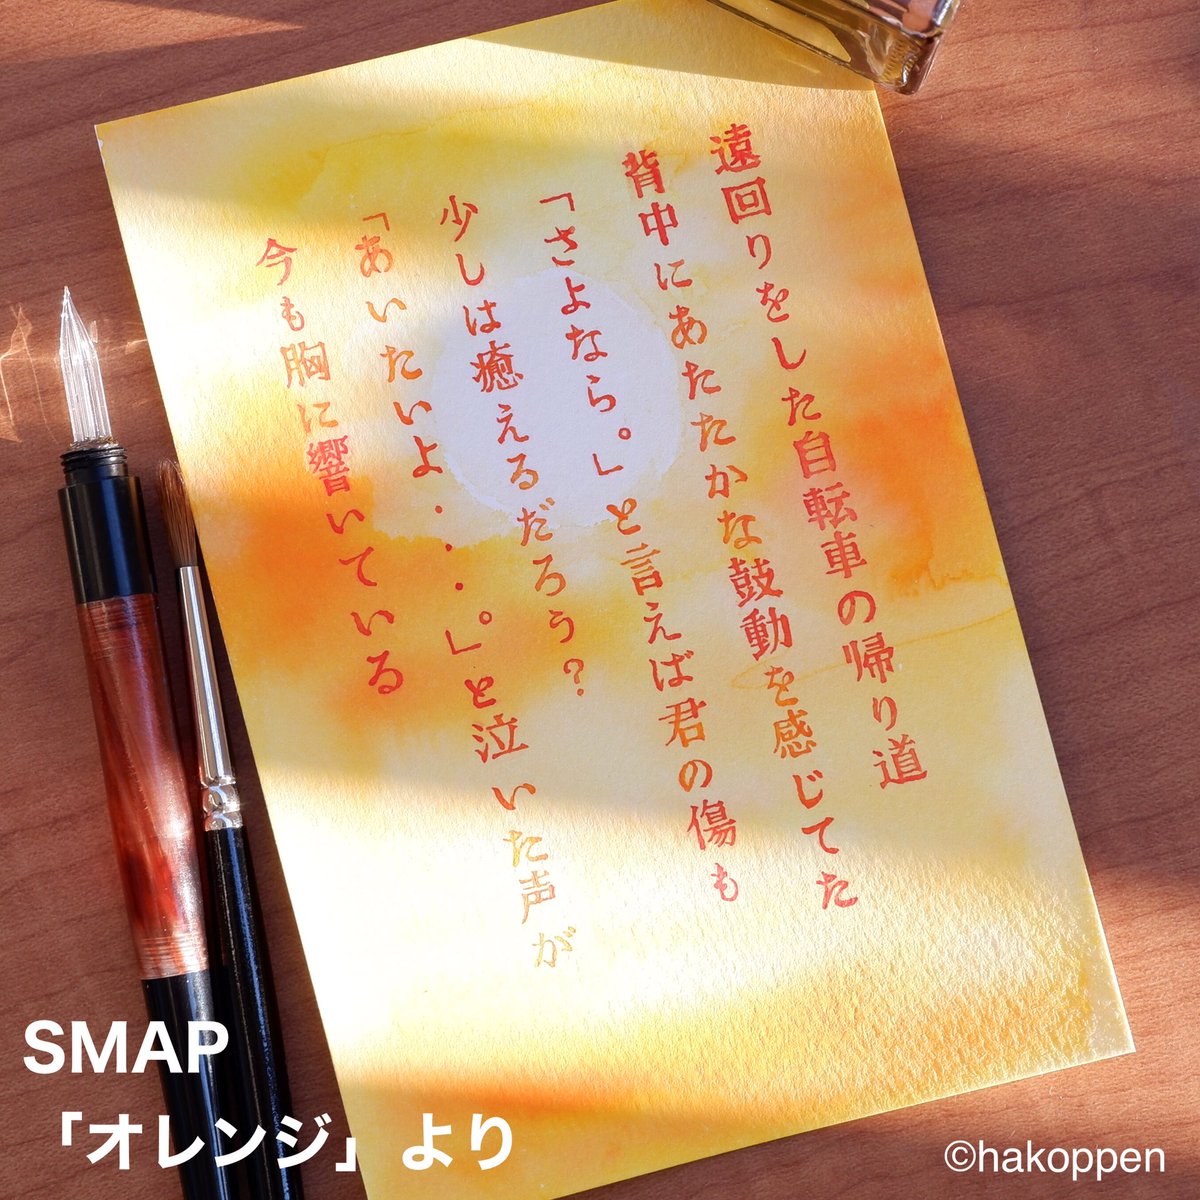 遠回りをした自転車の帰り道
背中にあたたかな鼓動を感じてた
「さよなら。」と言えば君の傷も
少しは癒えるだろう?
「あいたいよ・・・。」と泣いた声が
今も胸に響いている
SMAP
「オレンジ」より
©hakoppen